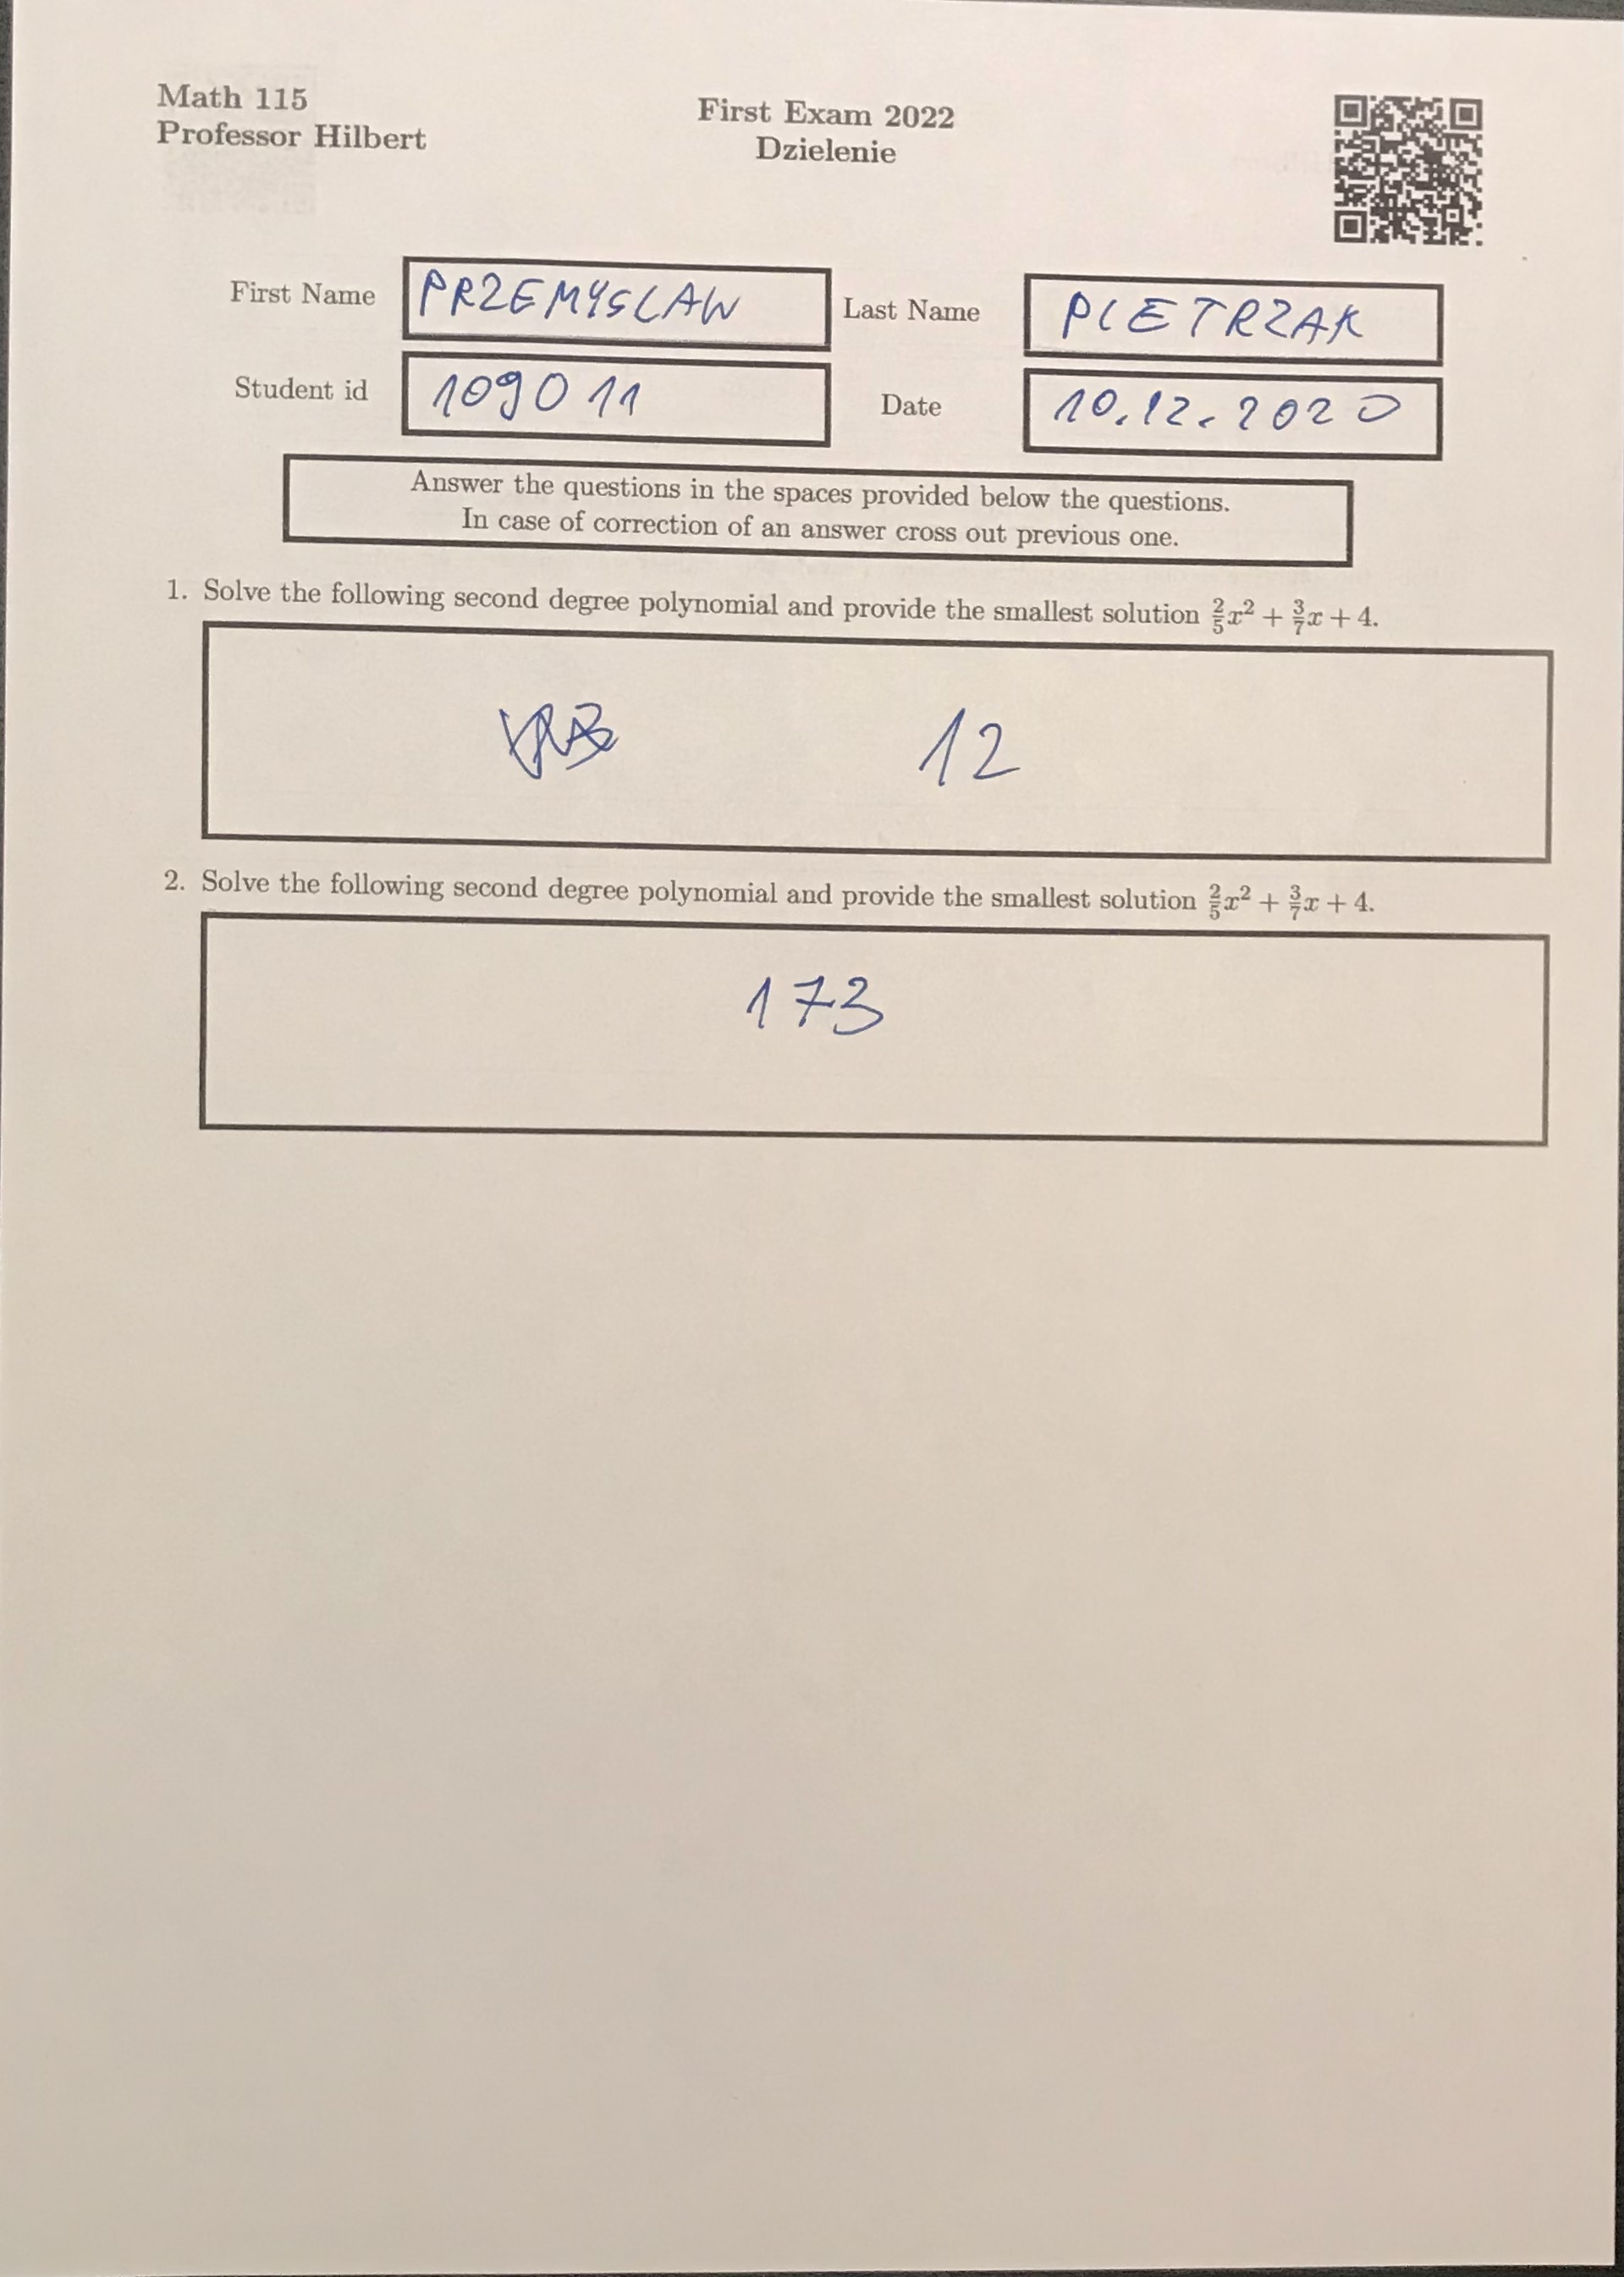 Math 115
Professor Hilbert
First Exam 2022
Dzielenie
First Name PRZEMYSLAW Last Name PIETRZAK
Student id 109011 Date 10.12.2020
Answer the questions in the spaces provided below the questions.
In case of correction of an answer cross out previous one.
1. Solve the following second degree polynomial and provide the smallest solution 2/5x² + 3/7x + 4.
12
2. Solve the following second degree polynomial and provide the smallest solution 2/5x² + 3/7x + 4.
173